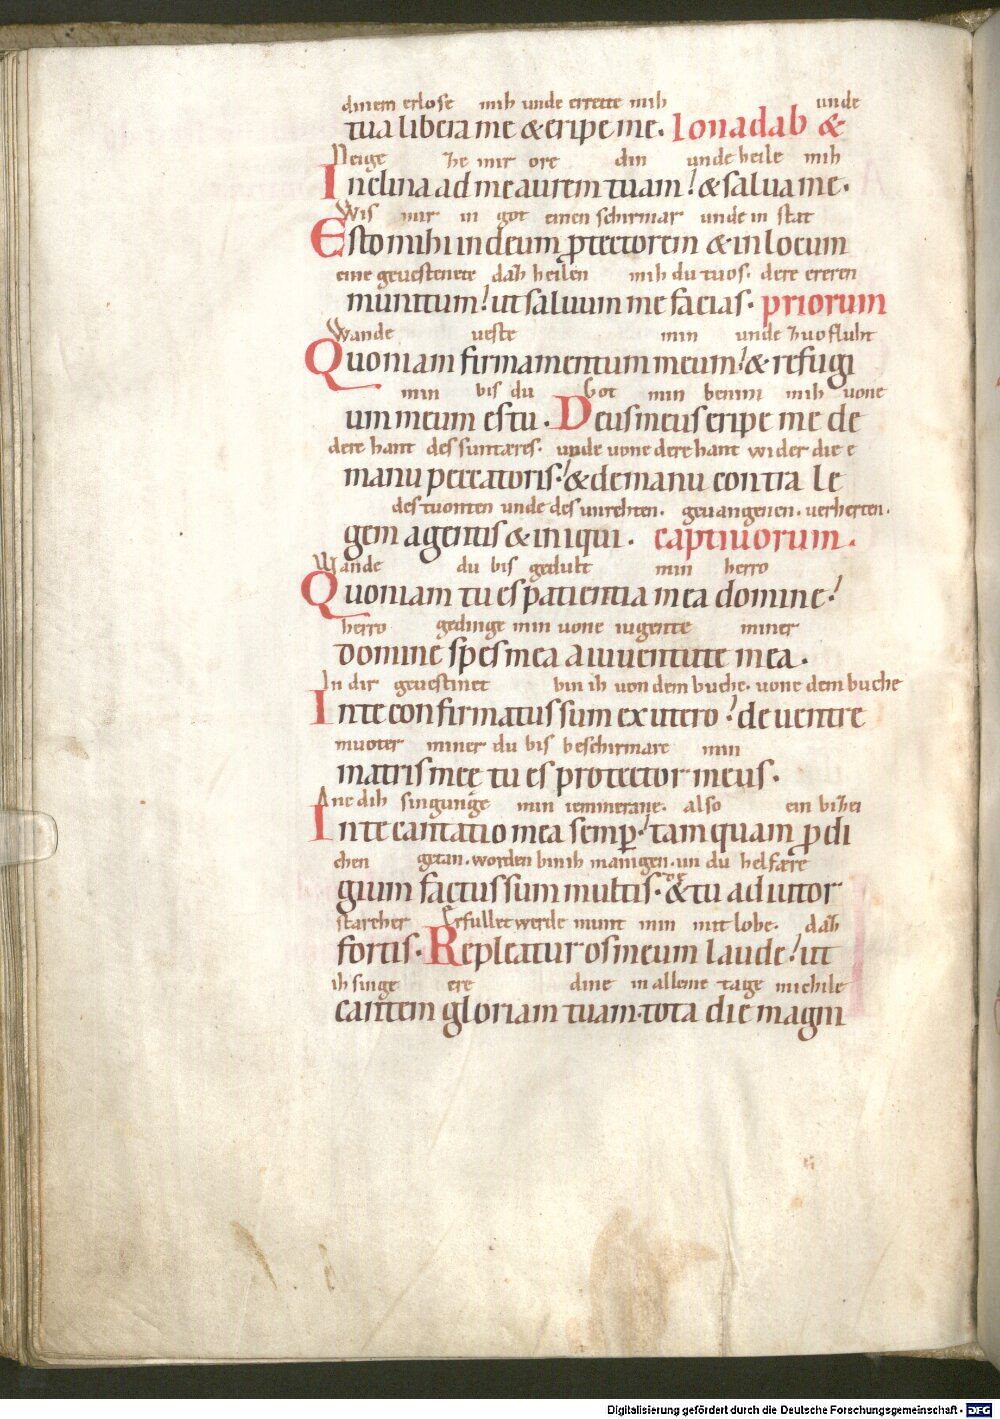 dinem erlose mih unde errette mih unde
tua libera me & eripe me. Ionadab &
Neige ze mir ore din unde heile mih
Inclina ad me aurem tuam! & salua me.
Wis mir in got einen schirmar unde in stat
Esto mihi in deum ꝓtectorem & in locum
eine geuestenete daz heilen mih du tuos. dere ereren
munitum! ut saluum me facias. priorum
Wande ueste min unde zuofluht
Quoniam firmamentum meum! & refugi
min bis du Got min benim mih uone
um meum es tu. Deus meus eripe me de
dere hant des suntæres. unde uone dere hant wider die e
manu peccatoris! & de manu contra le
des tuonten unde des unrehten. geuangenen. uerherten.
gem agentis & iniqui. captiuorum.
Wande du bis gedult min herro
Quoniam tu es patientia mea domine!
herro gedinge min uone iugente miner
domine spes mea a iuuentute mea.
In dir geuestinet bin ih uon dem buche. uone dem buche
In te confirmatus sum ex utero! de uentre
muoter miner du bis beschirmare min
matris meę tu es protector meus.
Ane dih singunge min iemmerane. also ein bizei
In te cantatio mea semꝑ! tamquam ꝓdi
chen getan. worden bin ih manigen. un du helfære
gium factus sum multis. & tu adiutor
starcher Erfullet werde munt min mit lobe. daz
fortis. Repleatur os meum laude! ut
ih singe ere dine in alleme tage michile
cantem gloriam tuam. tota die magni
Digitalisierung gefördert durch die Deutsche Forschungsgemeinschaft - DFG